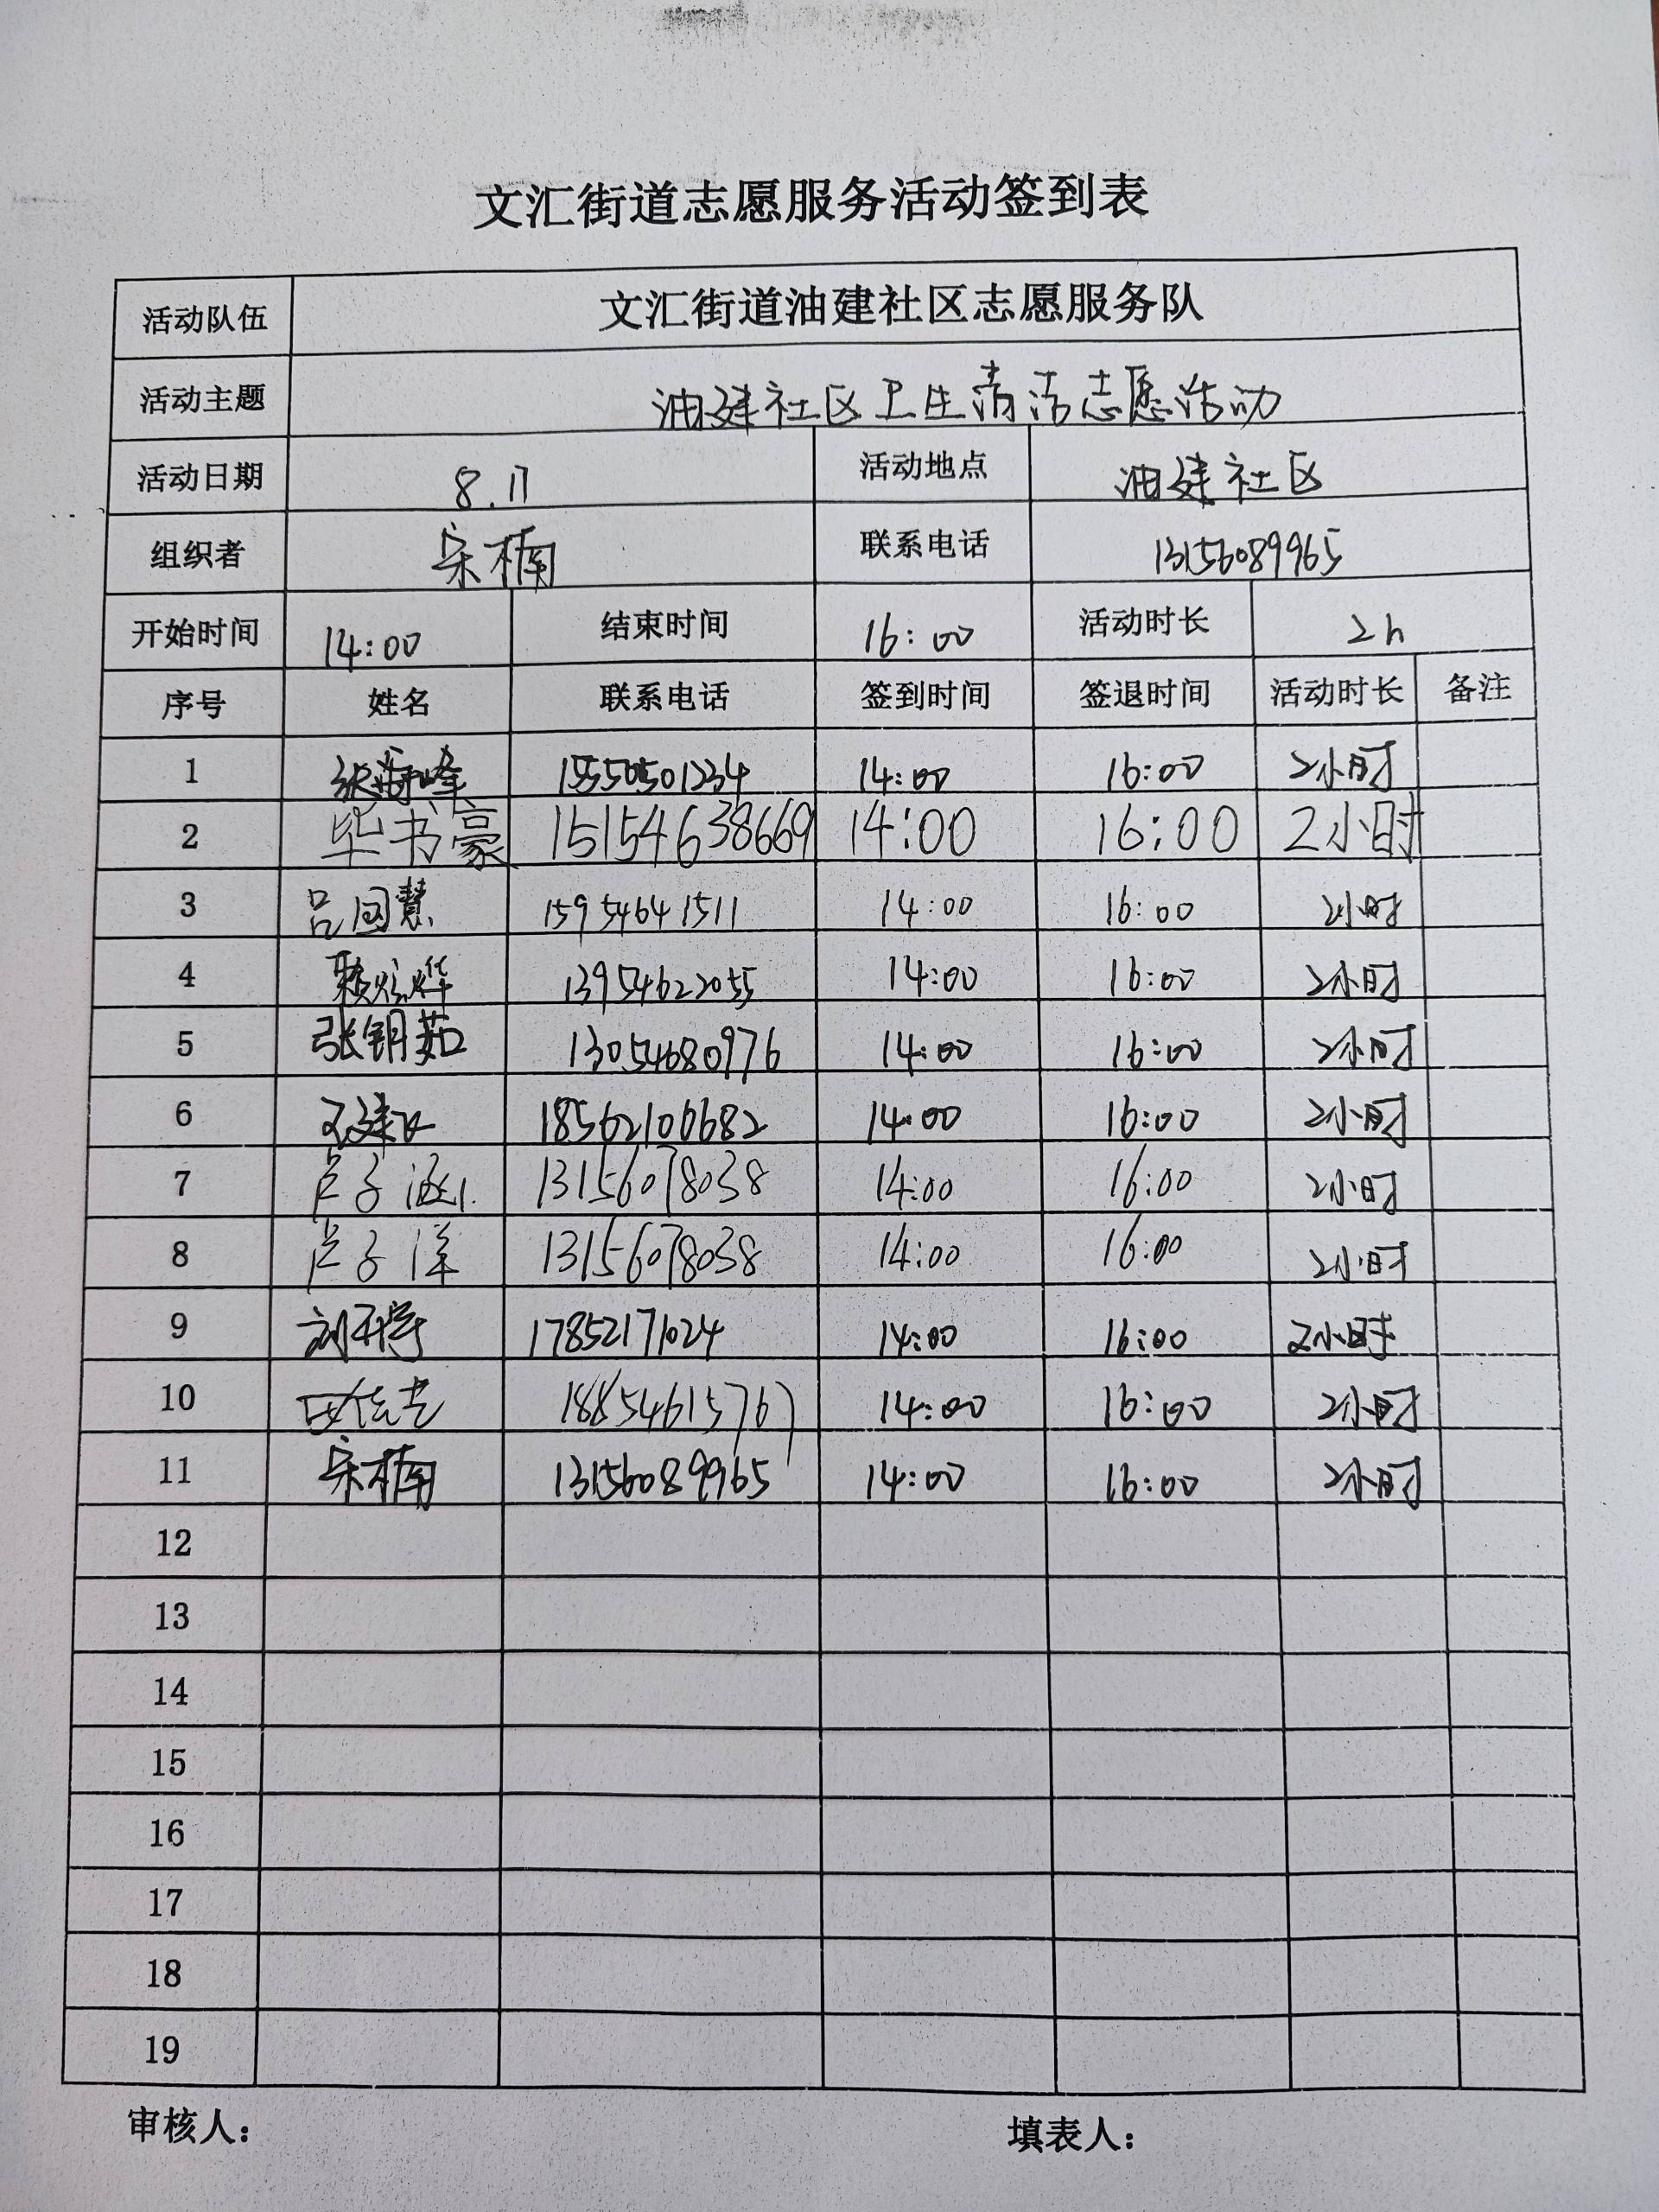 文汇街道志愿服务活动签到表
活动队伍 文汇街道油建社区志愿服务队
活动主题 油建社区卫生清洁志愿活动
活动日期 8.17 活动地点 油建社区
组织者 宋楠 联系电话 13156089965
开始时间 14:00 结束时间 16:00 活动时长 2h
序号 姓名 联系电话 签到时间 签退时间 活动时长 备注
1 张海峰 15550501234 14:00 16:00 2小时
2 毕书豪 15154638669 14:00 16:00 2小时
3 吕国慧 15954641511 14:00 16:00 2小时
4 13954622055 14:00 16:00 2小时
5 张钥茹 13054680976 14:00 16:00 2小时
6 18562106682 14:00 16:00 2小时
7 芦子涵 13156078038 14:00 16:00 2小时
8 芦子洋 13156078038 14:00 16:00 2小时
9 17852171024 14:00 16:00 2小时
10 18854615767 14:00 16:00 2小时
11 宋楠 13156089965 14:00 16:00 2小时
12
13
14
15
16
17
18
19
审核人： 填表人：